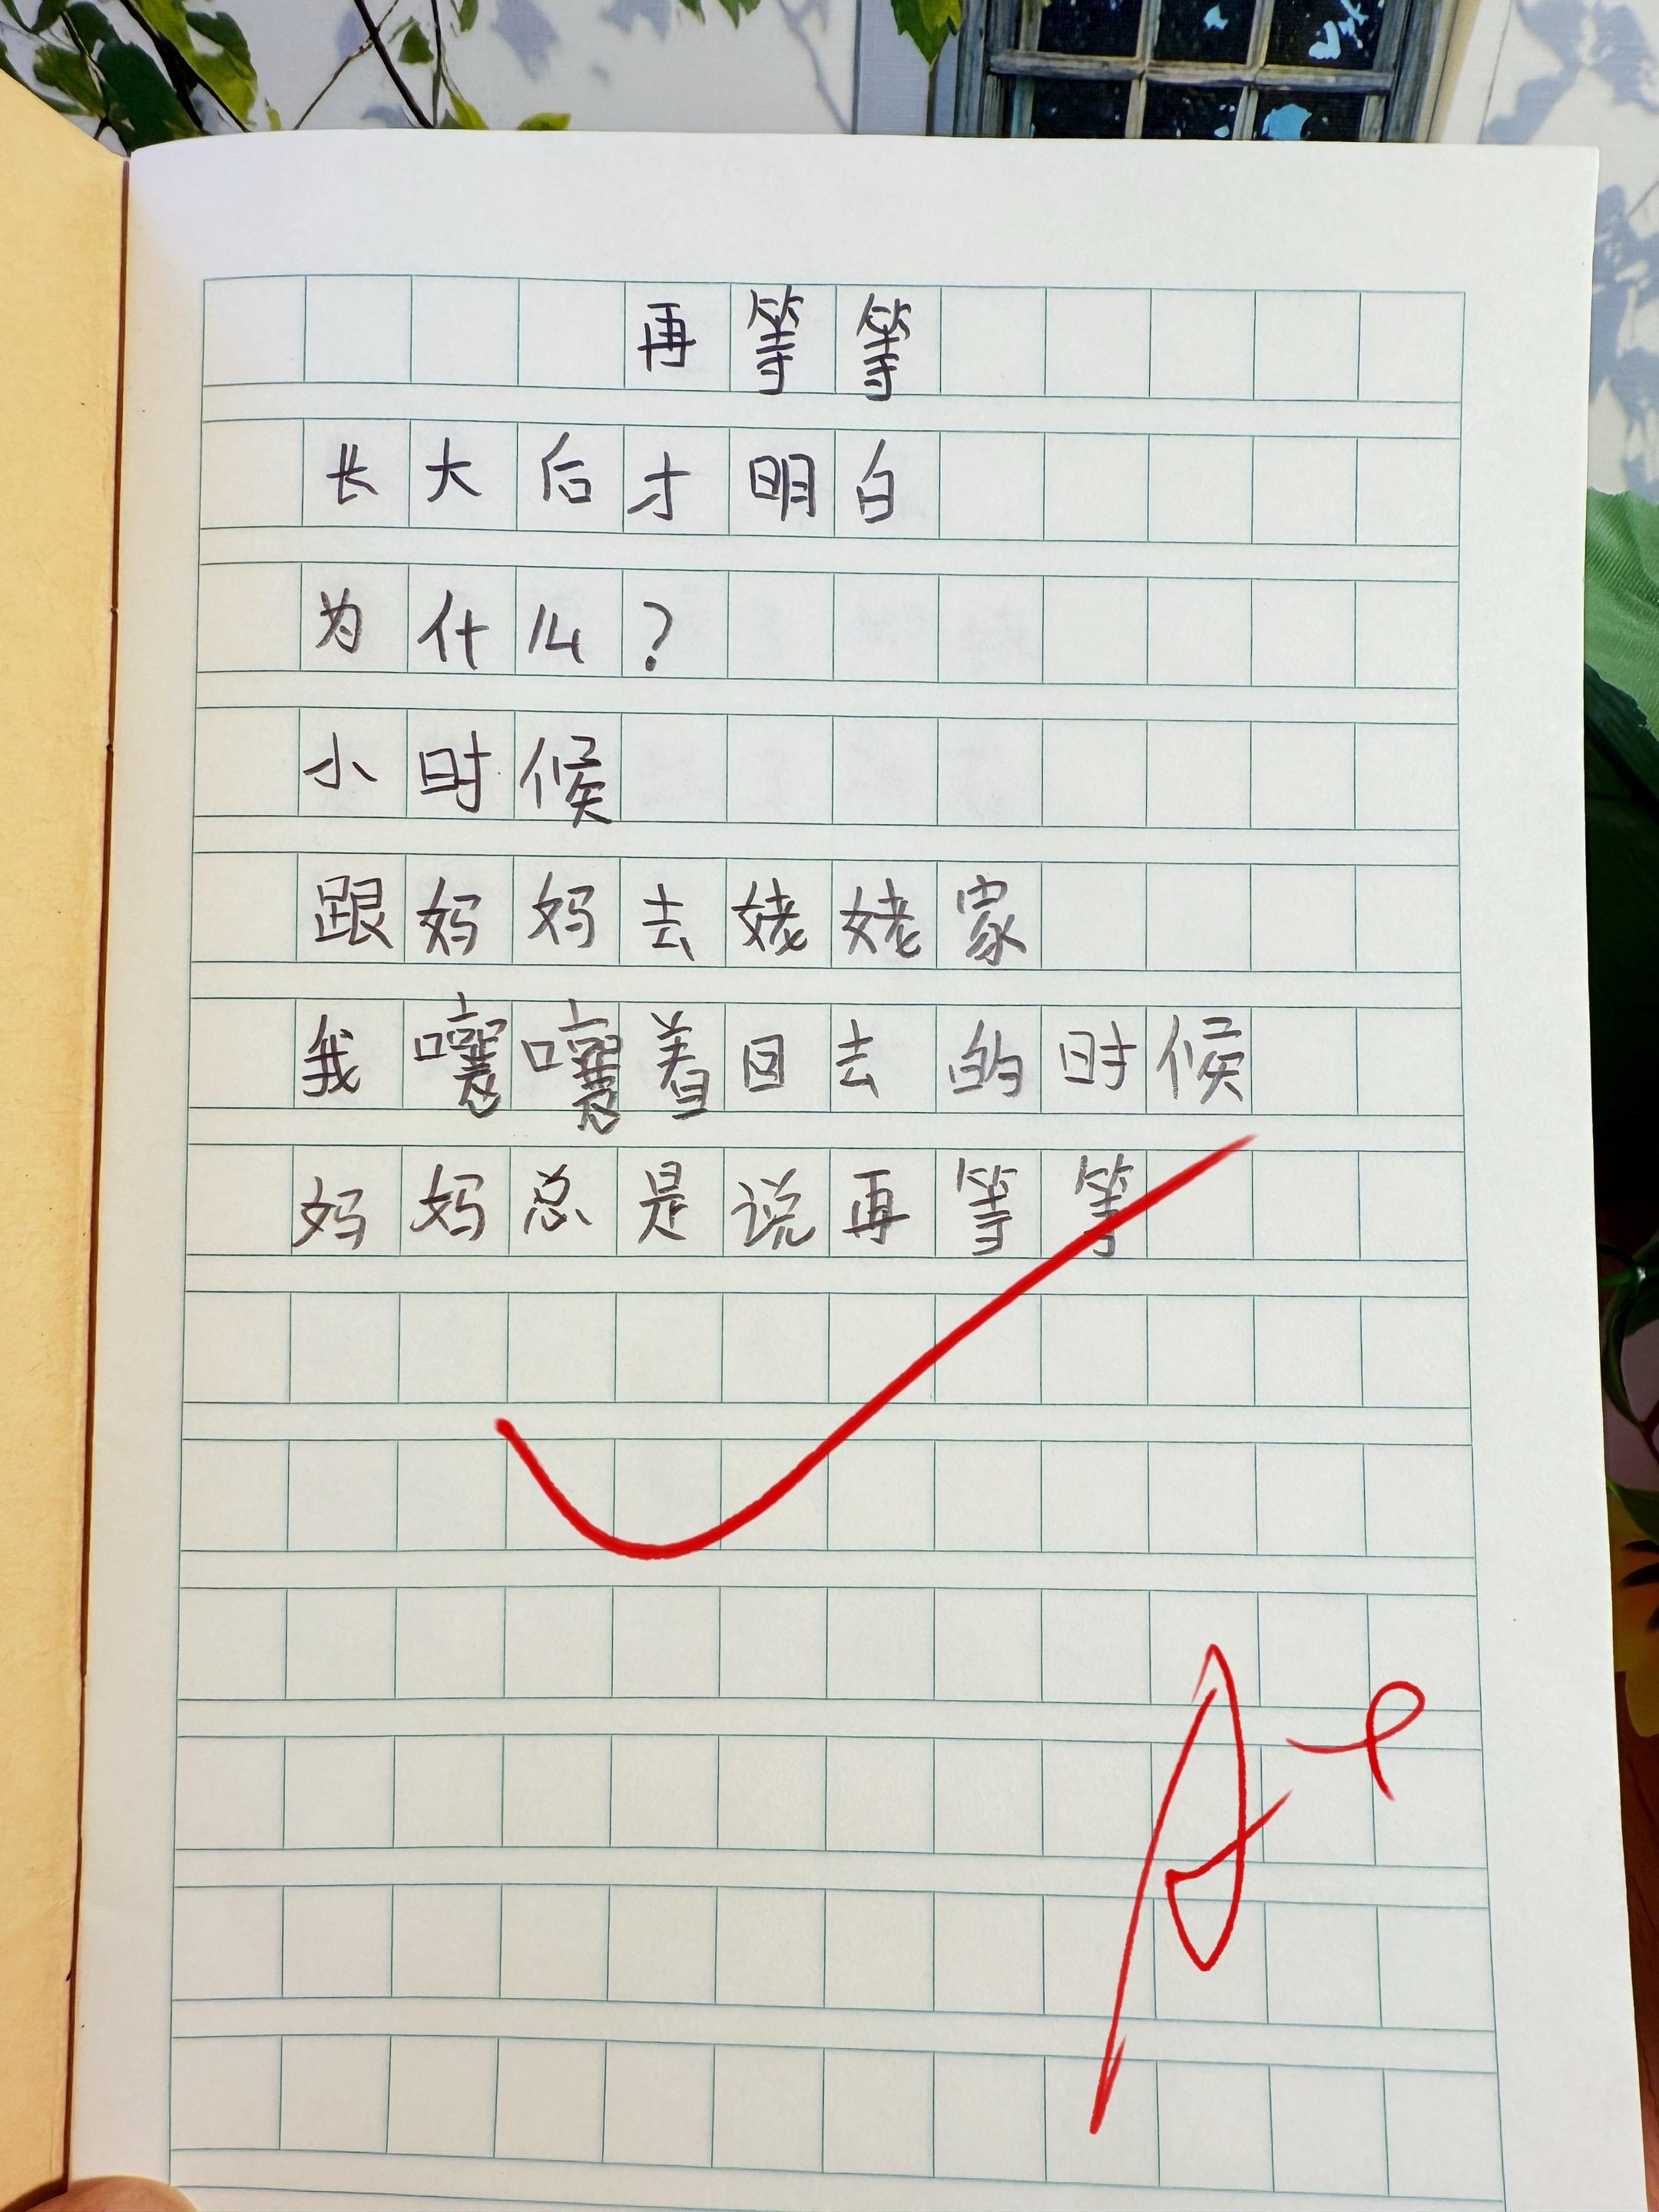 再等等
长大后才明白
为什么?
小时候
跟妈妈去姥姥家
我囔囔着回去的时候
妈妈总是说再等等
A+